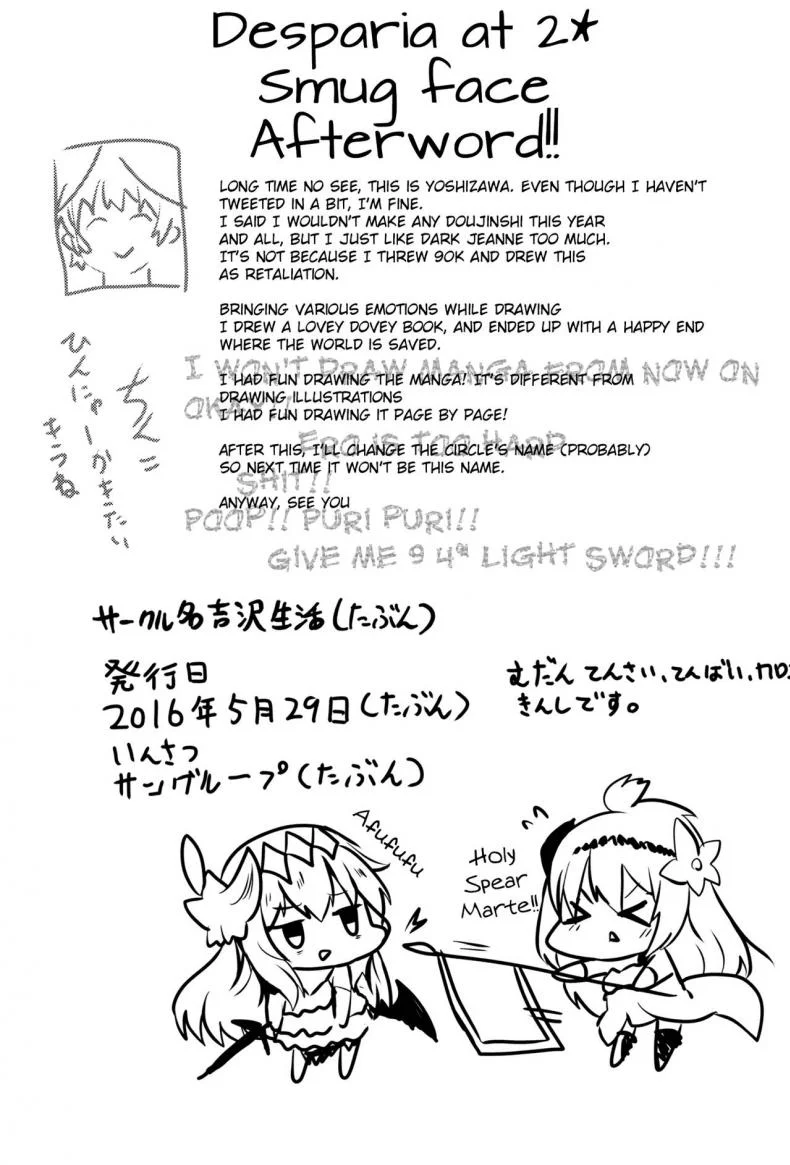 Desparia at 2★
Smug face
Afterword!!
LONG TIME NO SEE, THIS IS YOSHIZAWA. EVEN THOUGH I HAVEN'T
TWEETED IN A BIT, I'M FINE.
I SAID I WOULDN'T MAKE ANY DOUJINSHI THIS YEAR
AND ALL, BUT I JUST LIKE DARK JEANNE TOO MUCH.
IT'S NOT BECAUSE I THREW 90K AND DREW THIS
AS RETALIATION.
BRINGING VARIOUS EMOTIONS WHILE DRAWING
I DREW A LOVEY DOVEY BOOK, AND ENDED UP WITH A HAPPY END
WHERE THE WORLD IS SAVED.
I WON'T DRAW MANGA FROM NOW ON
OKAY!!
I HAD FUN DRAWING THE MANGA! IT'S DIFFERENT FROM
DRAWING ILLUSTRATIONS
I HAD FUN DRAWING IT PAGE BY PAGE!
ERO IS TOO HARD
SHIT!!
AFTER THIS, I'LL CHANGE THE CIRCLE'S NAME (PROBABLY)
SO NEXT TIME IT WON'T BE THIS NAME.
ANYWAY, SEE YOU
POOP!! PURI PURI!!
GIVE ME 9 4* LIGHT SWORD!!!
ちんこ
ひんにゅーかきたい
きうね
サークル名吉沢生活(たぶん)
発行日
2016年5月29日(たぶん)
いんさつ
サングループ(たぶん)
むだんてんさい、てんばい、カロ
きんしです。
Afufufu
Holy
Spear
Marte!!